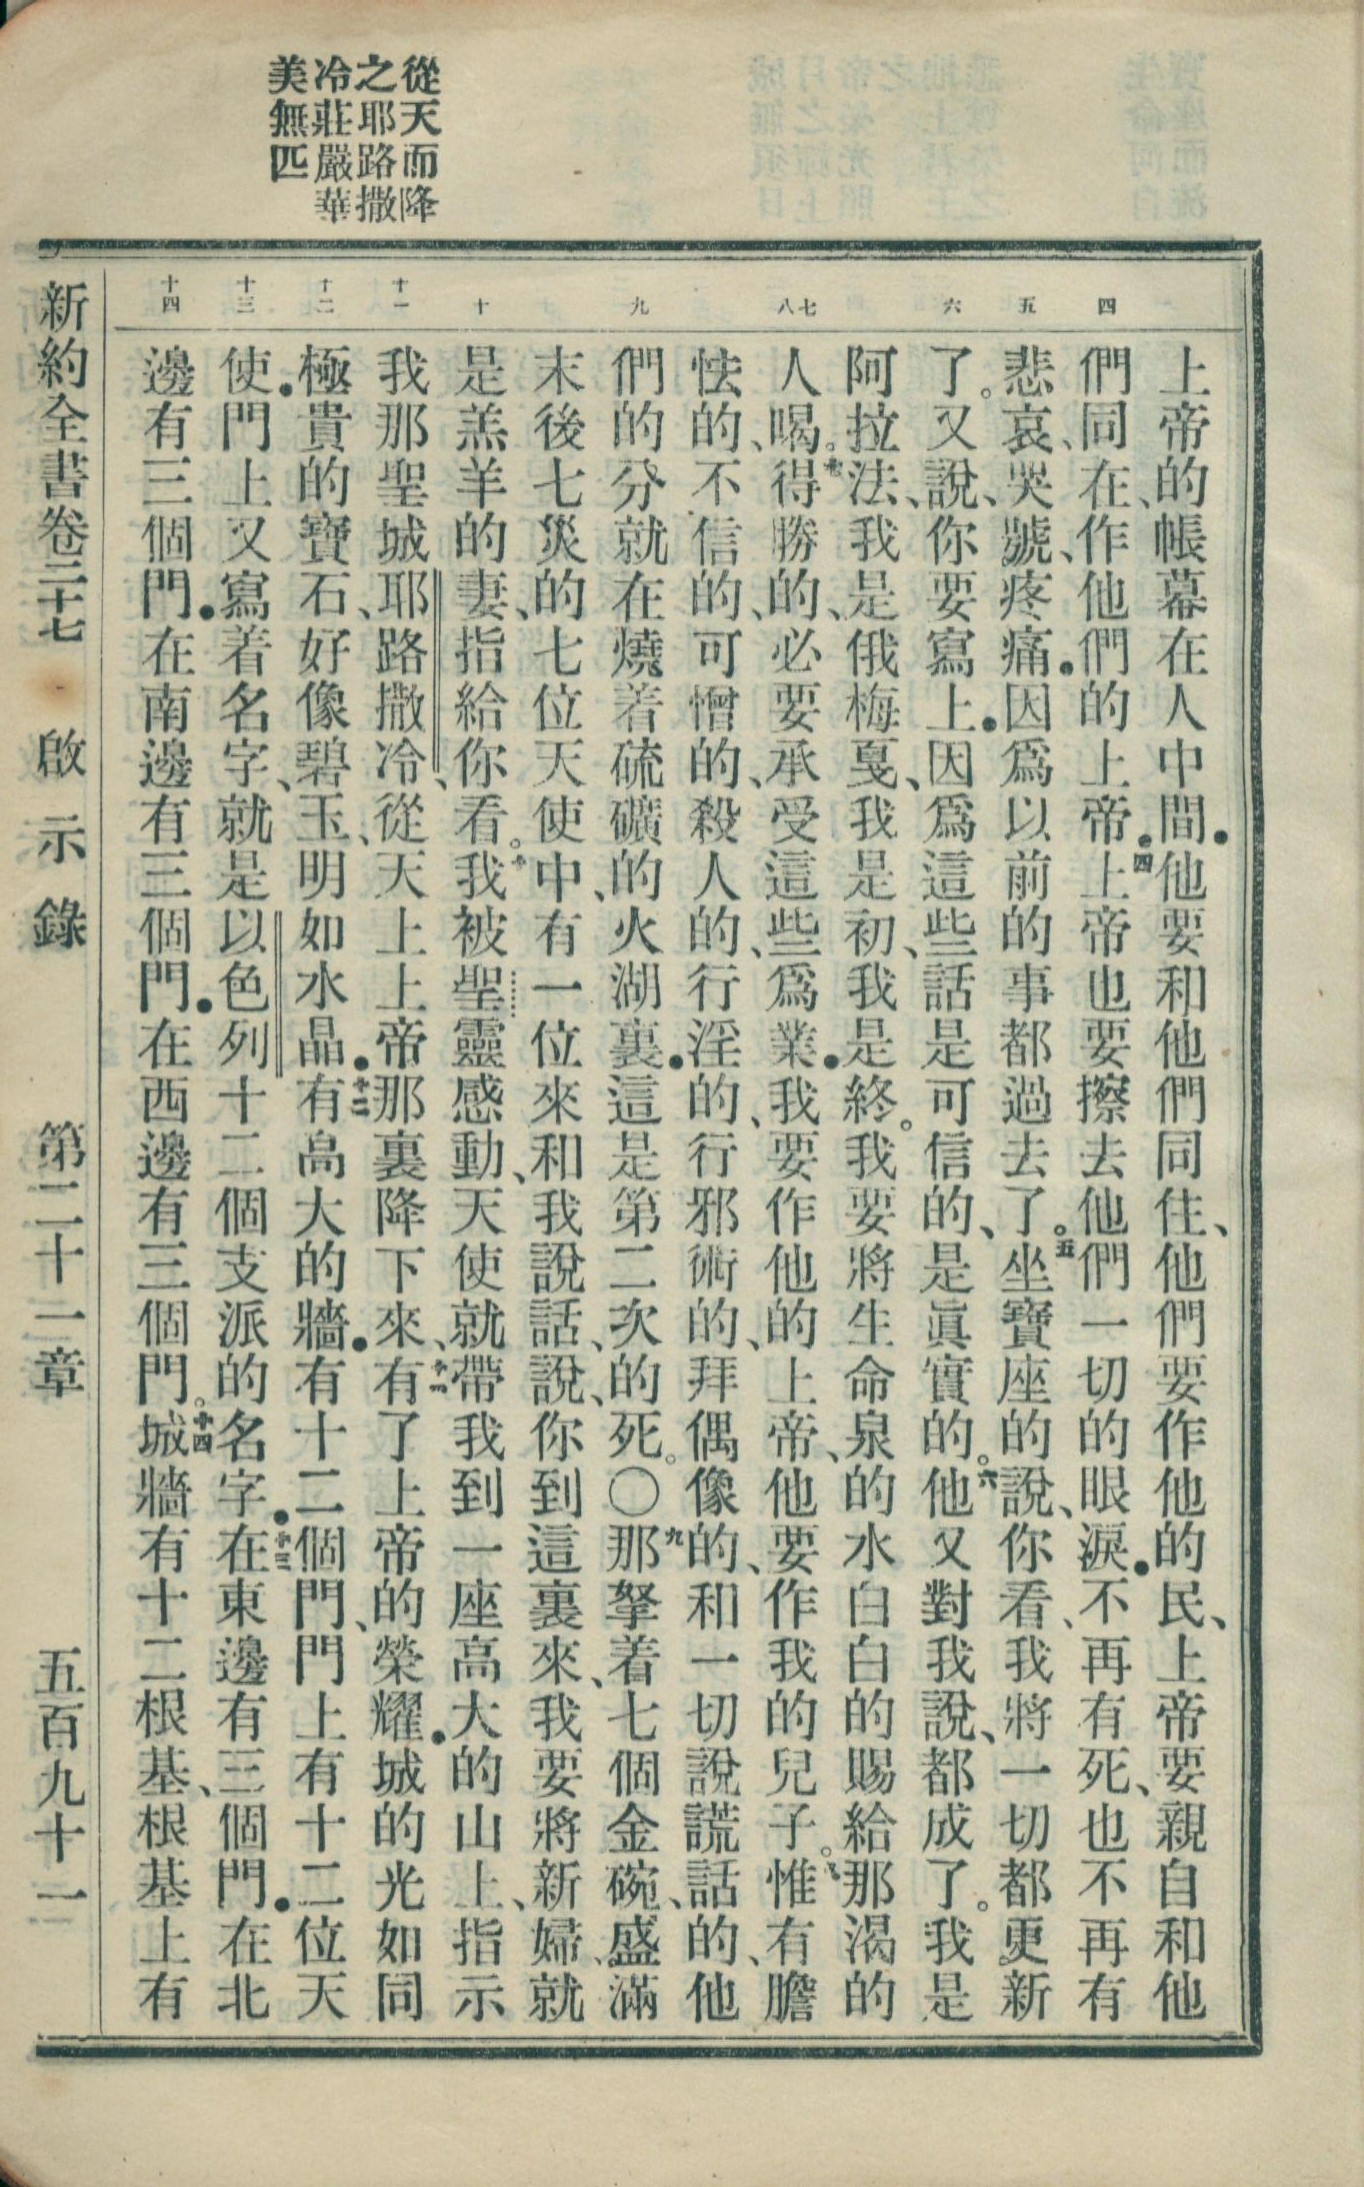 從天而降
之耶路撒
冷莊嚴華
美無匹
四
五
六
七
八
九
十
十一
十二
十三
十四
上帝的帳幕在人中間．他要和他們同住、他們要作他的民、上帝要親自和他
們同在、作他們的上帝．四上帝也要擦去他們一切的眼淚．不再有死、也不再有
悲哀、哭號、疼痛．因爲以前的事都過去了。五坐寶座的說、你看、我將一切都更新
了。又說、你要寫上．因爲這些話是可信的、是眞實的。六他又對我說、都成了。我是
阿拉法、我是俄梅戛、我是初、我是終。我要將生命泉的水白白的賜給那渴的
人喝。七得勝的、必要承受這些爲業．我要作他的上帝、他要作我的兒子。八惟有膽
怯的、不信的、可憎的、殺人的、行淫的、行邪術的、拜偶像的、和一切說謊話的、他
們的分就在燒着硫礦的火湖裏．這是第二次的死。〇九那拏着七個金碗、盛滿
末後七災的七位天使中、有一位來和我說話、說、你到這裏來、我要將新婦、就
是羔羊的妻、指給你看。十我被聖靈感動、天使就帶我到一座高大的山上、指示
我那聖城耶路撒冷、從天上上帝那裏降下來、十一有了上帝的榮耀．城的光如同
極貴的寶石、好像碧玉、明如水晶．十二有高大的牆．有十二個門、門上有十二位天
使．門上又寫着名字、就是以色列十二個支派的名字．十三在東邊有三個門．在北
邊有三個門．在南邊有三個門．在西邊有三個門。十四城牆有十二根基、根基上有
新約全書卷二十七 啟示錄 第二十一章 五百九十一